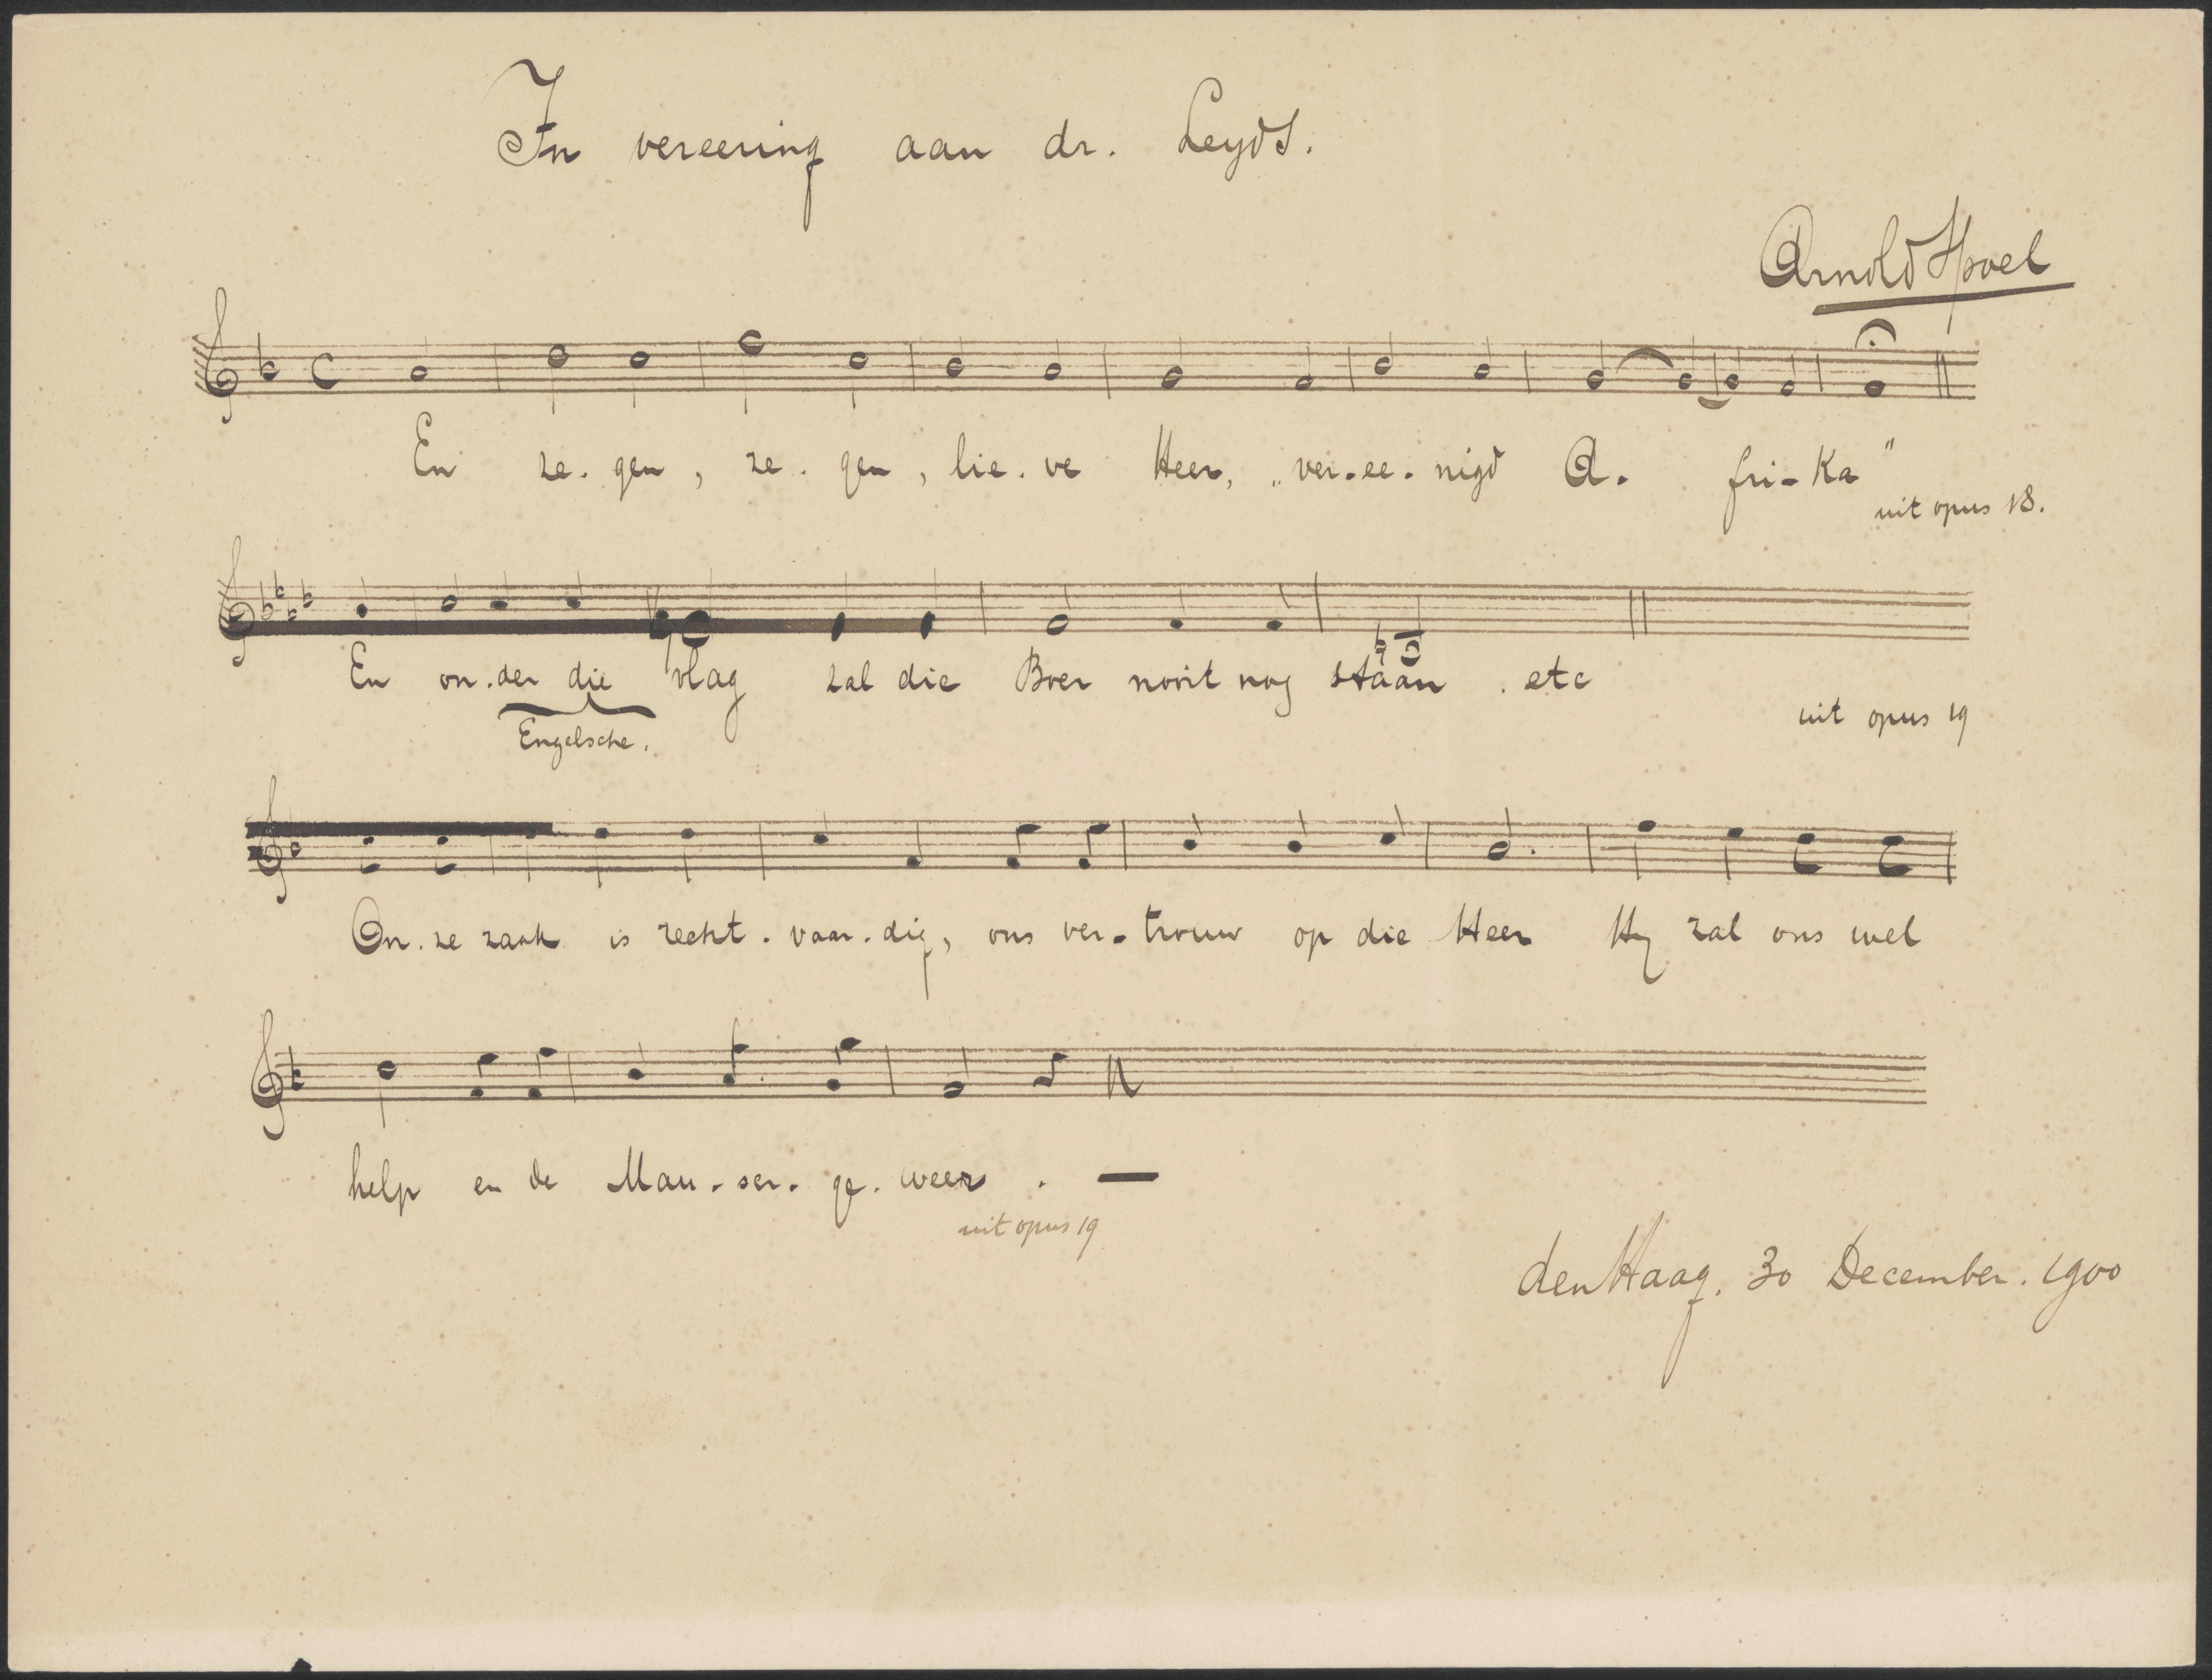 In vereering aan dr. Leyds.
Arnold Spoel
En ze. gen, ze. gen, lie. ve Heer, „ver. ee. nigd A. fri- ka"
uit opus 18.
En on. der die vlag zal die Boer nooit nog staan . etc
Engelsche.
uit opus 19
On. ze zaak is recht. vaar. dig, ons ver- trouw op die Heer Hy zal ons wel
help en de Mau. ser. ge. weer . —
uit opus 19
den Haag. 30 December. 1900